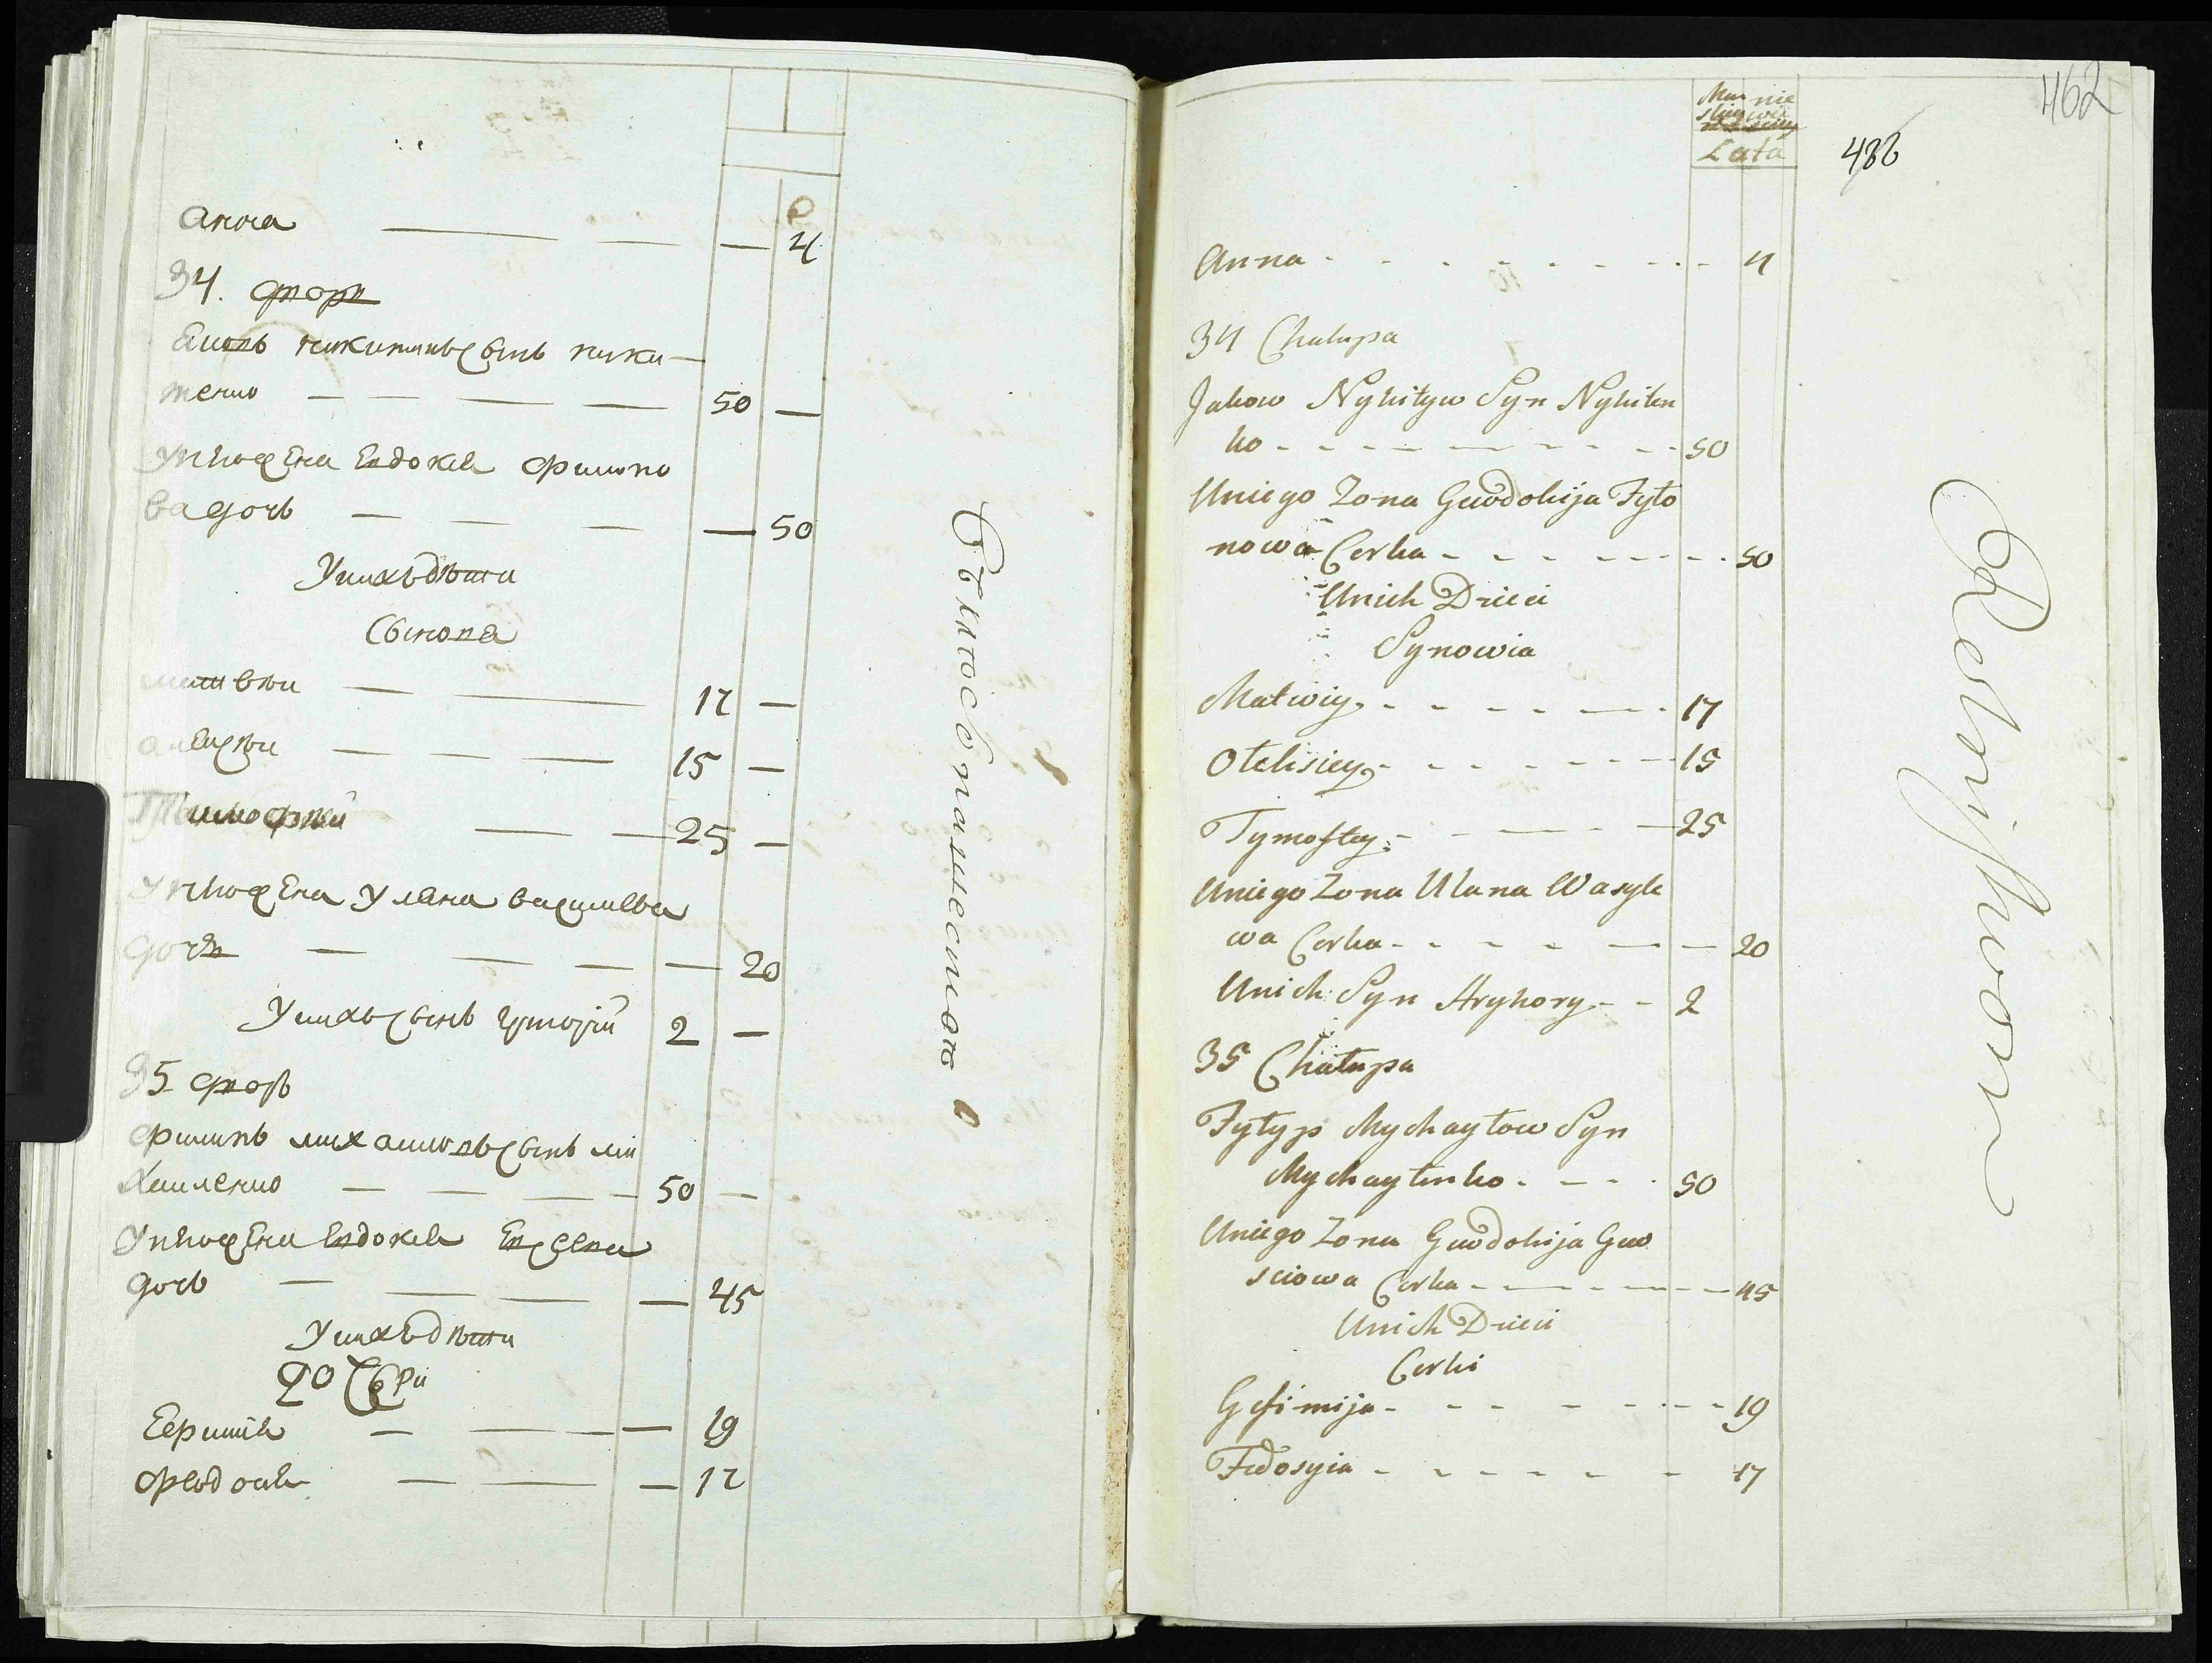 Анна — — — 4
34. двор
Яковъ никитинъ сынъ ники-
тенко — — — — 50 —
У него жена Евдокия филипо
ва дочь — — — — — 50
У нихъ дѣти
Сынова
матвѣи — — 17 —
алексѣи — — — 15 —
Тимофѣй — — 25 —
У него жена Уляна василева
дочь — — — — — 20
У нихъ сынъ григорій 2 —
35 дворъ
филипъ михаиловъ сынъ ми
хаиленко — — — — 50 —
У него жена Евдокия
дочь — — — — 45
У нихъ дѣти
дочери
Ефимія — — — — 19
феодосия — — — 17
462
488
Lata
Anna - - - - - - - - 4
34 Chałupa
Jakow Nykityw Syn Nykiten
ko - - - - - - - - - 50
Uniego Zona Gwdokija Fyło
nowa Corka - - - - - - - 50
Unich Dzieci
Synowia
Matwiy - - - - - - 17
Ołeksiey - - - - - - 15
Tymoftey - - - - 25
Uniego Zona Ulana Wasyle
wa Corka - - - - - - 20
Unich Syn Hryhory - - 2
35 Chałupa
Fyłyp Mychayłow Syn
Mychayłenko - - - - 50
Uniego Zona Gwdokija Gww
sciowa Corka - - - - - - - 45
Unich Dzieci
Corki
Gefimija - - - - - - - - 19
Fedosyia - - - - - - 17